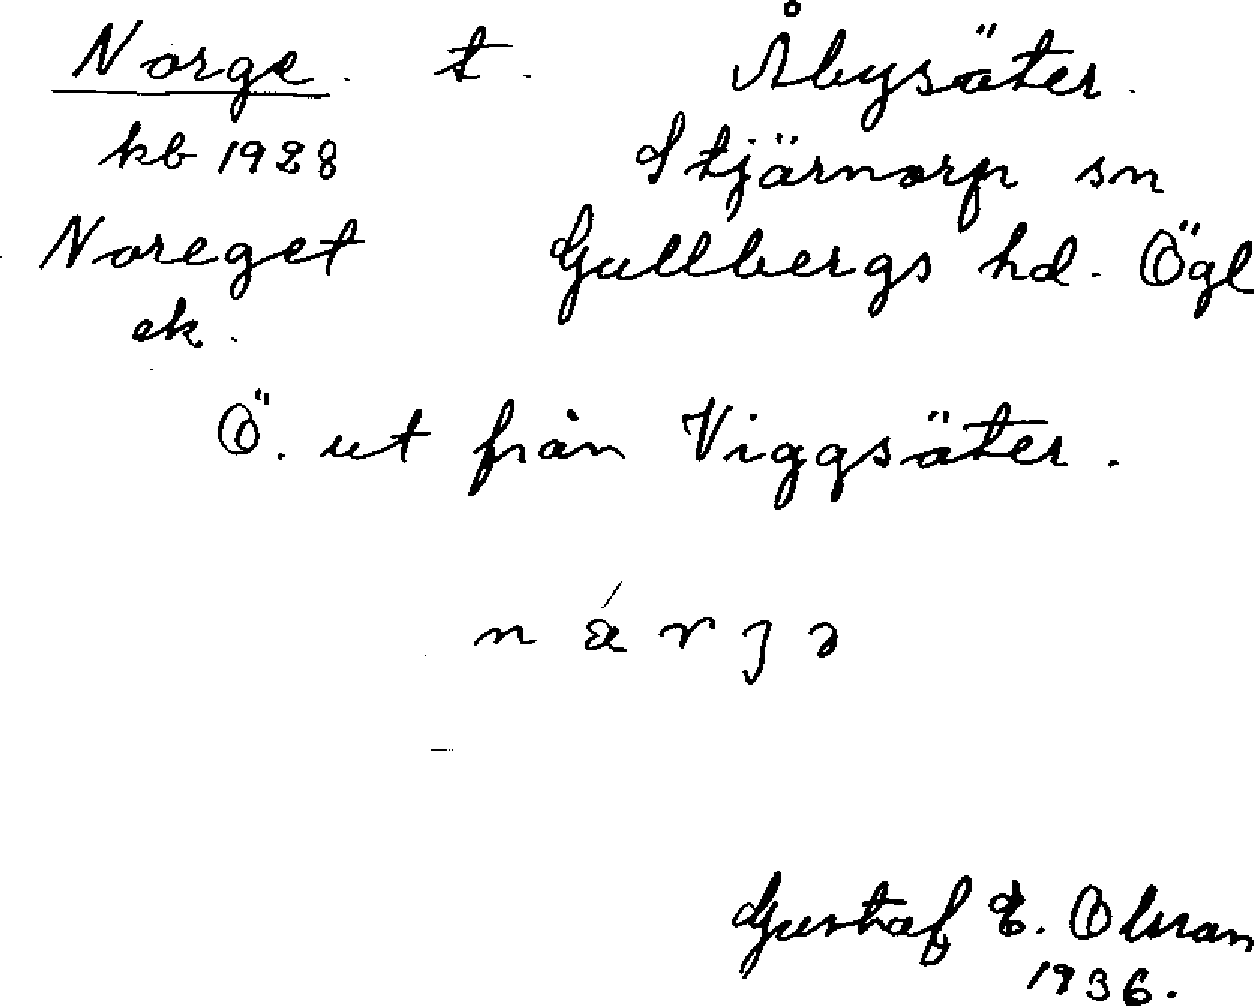 Norge. t. Åbysäter.
kb 1928 Stjärnorp sn
Noreget Gullbergs hd. Ögl
ek.
Ö. ut från Viggsäter.
n á r j ə
Gustaf E. Olsson
1936.